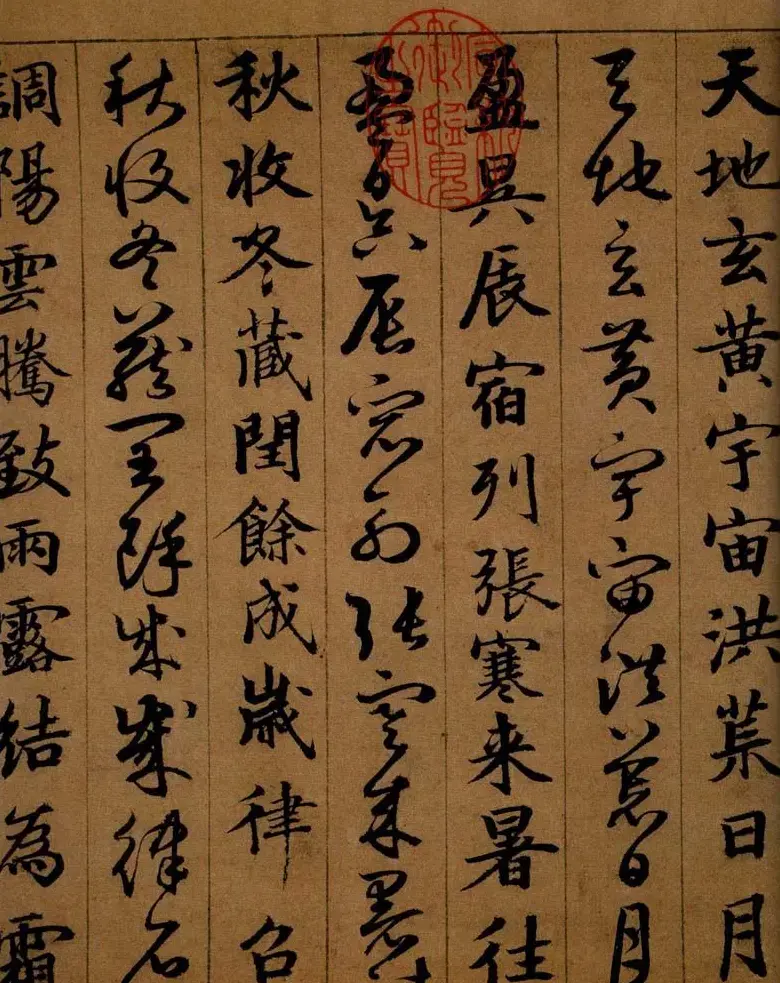 天地玄黄宇宙洪荒日月
天地玄黄宇宙洪荒日月
盈昃辰宿列張寒来暑往
盈昃辰宿列張寒来暑
秋收冬藏閏餘成歲律召
秋收冬藏閏餘成歲律召
調陽雲騰致雨露結為霜
御覽之寶